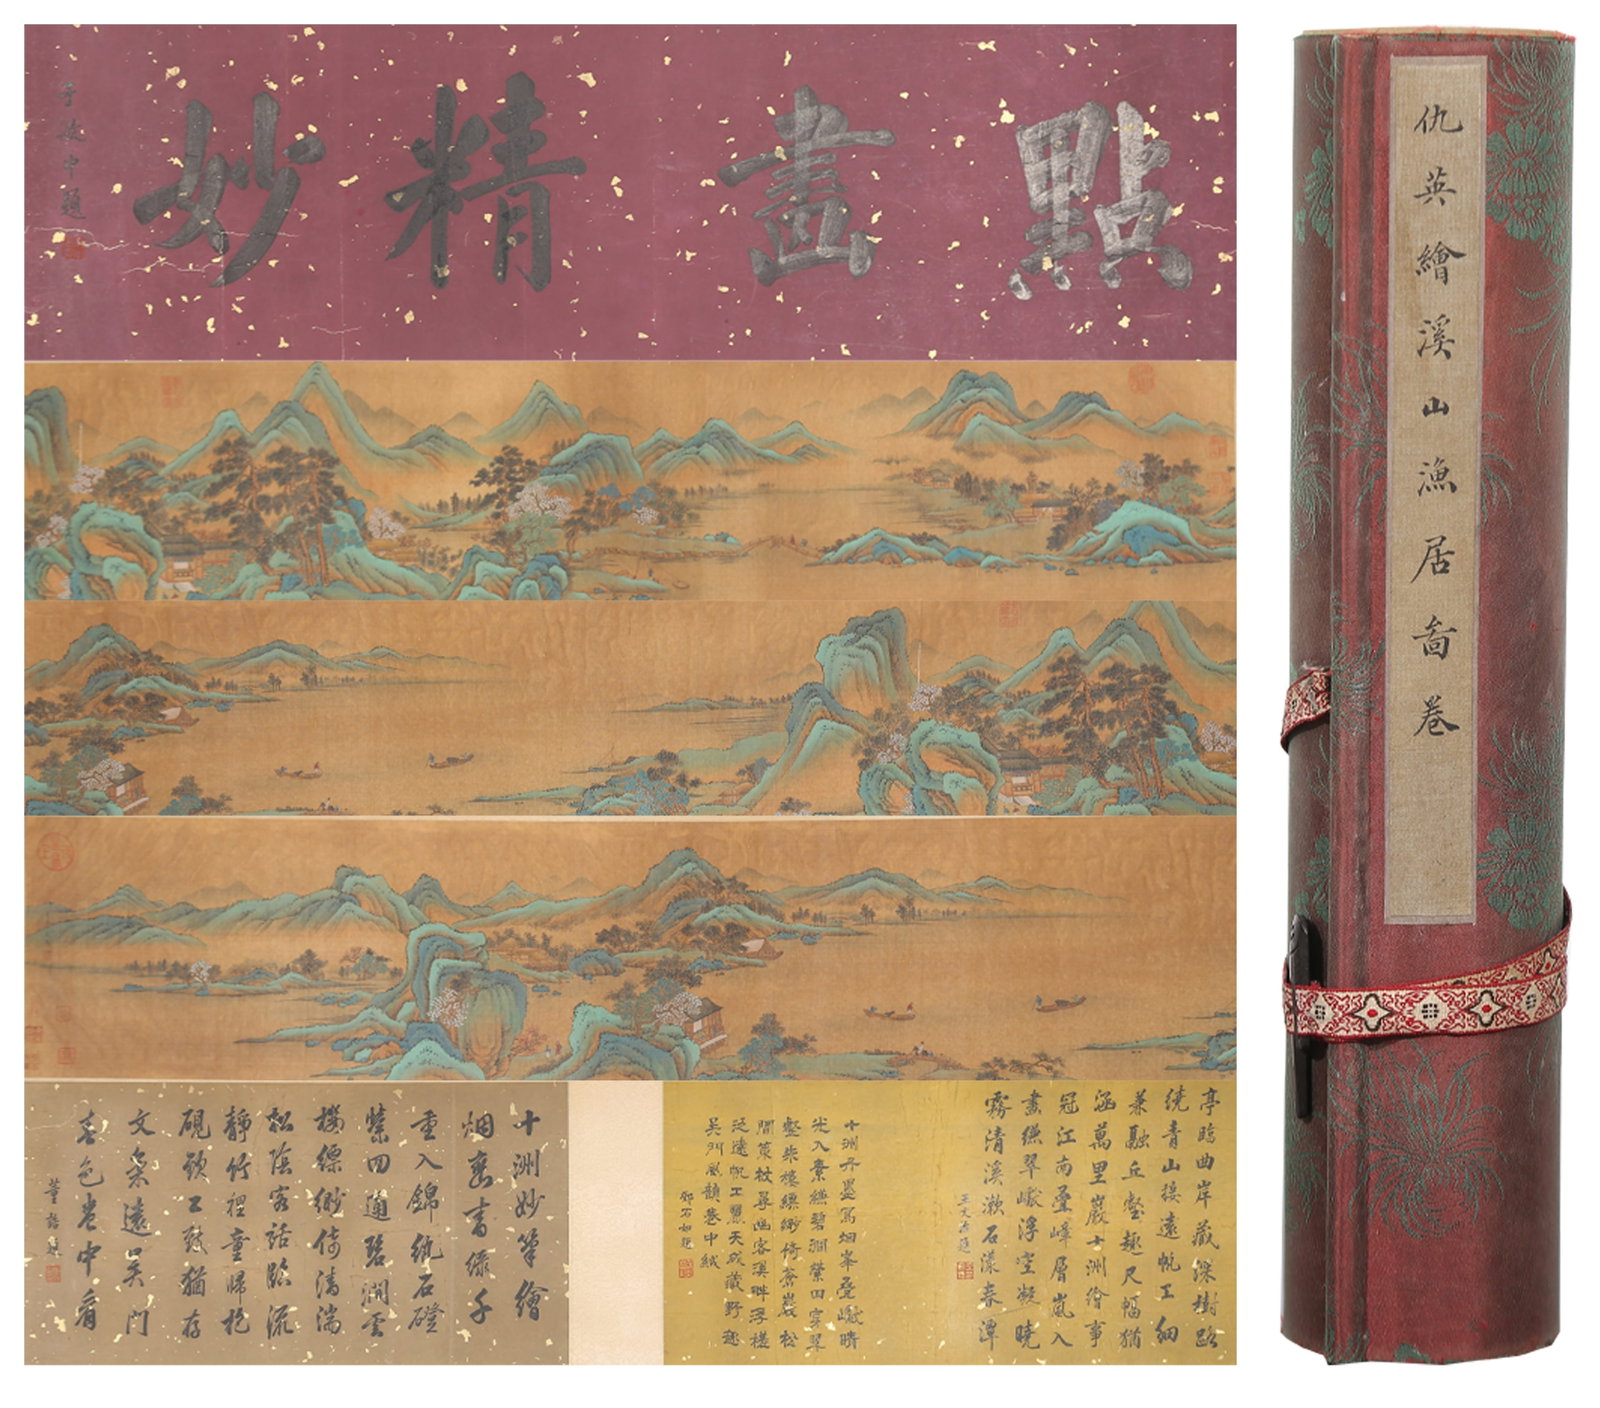 點畫精妙
于敏中題
仇英繪溪山漁居啚卷
亭臨曲岸藏深樹路
繞青山接遠帆工細
兼融丘壑趣尺幅猶
涵萬里巖十洲繪事
冠江南叠嶂層嵐入
畫縑翠巘浮空凝曉
霧清溪漱石漾春潭
王文治題
十洲丹墨寫烟峯叠巘晴
光入素縑碧澗縈回穿翠
壑朱樓縹緲倚蒼巖松
間策杖尋幽客溪畔浮槎
泛遠帆工麗天成藏野趣
吳門風韻卷中緘
鄧石如題
十洲妙筆繪
烟巒青綠千
重入錦紈石磴
縈回通碧澗雲
樓縹緲倚清湍
松陰客話臨流
靜竹裡童歸抱
硯歡工致猶存
文氣遠吳門
春色卷中看
董誥題